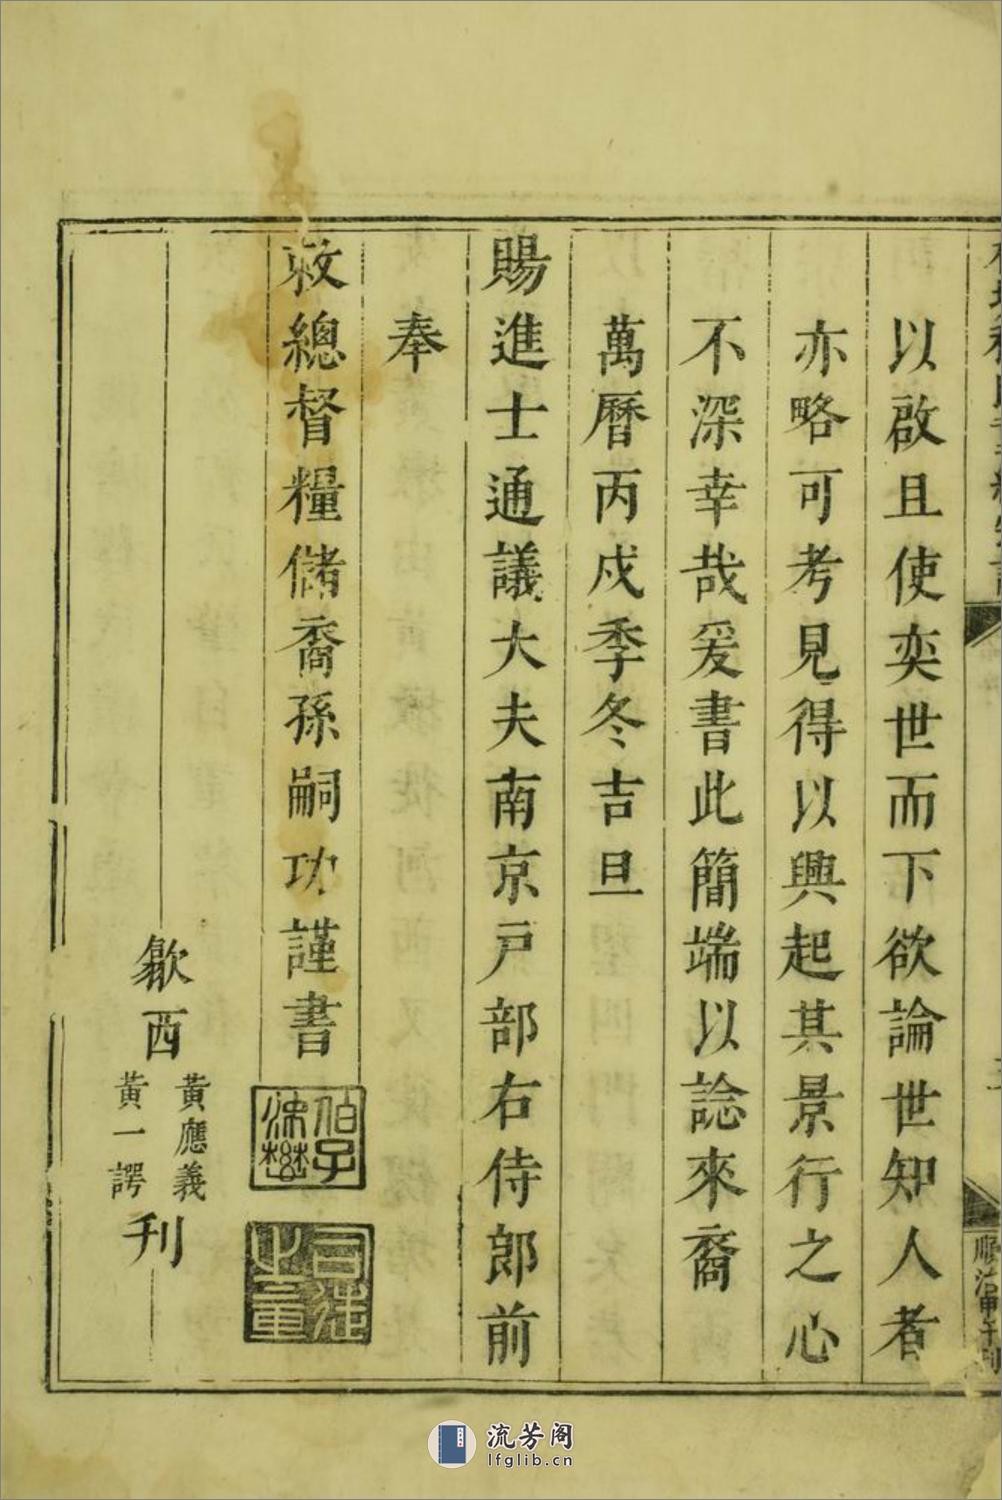 以啟且使奕世而下欲論世知人者
亦略可考見得以興起其景行之心
不深幸哉爰書此簡端以諗來裔
萬曆丙戍季冬吉旦
賜進士通議大夫南京戸部右侍郎前
奉
敕總督糧儲裔孫嗣功謹書
歙西
黃應義
黃一諤
刊
順治甲午刊
流芳阁
lfglib.cn